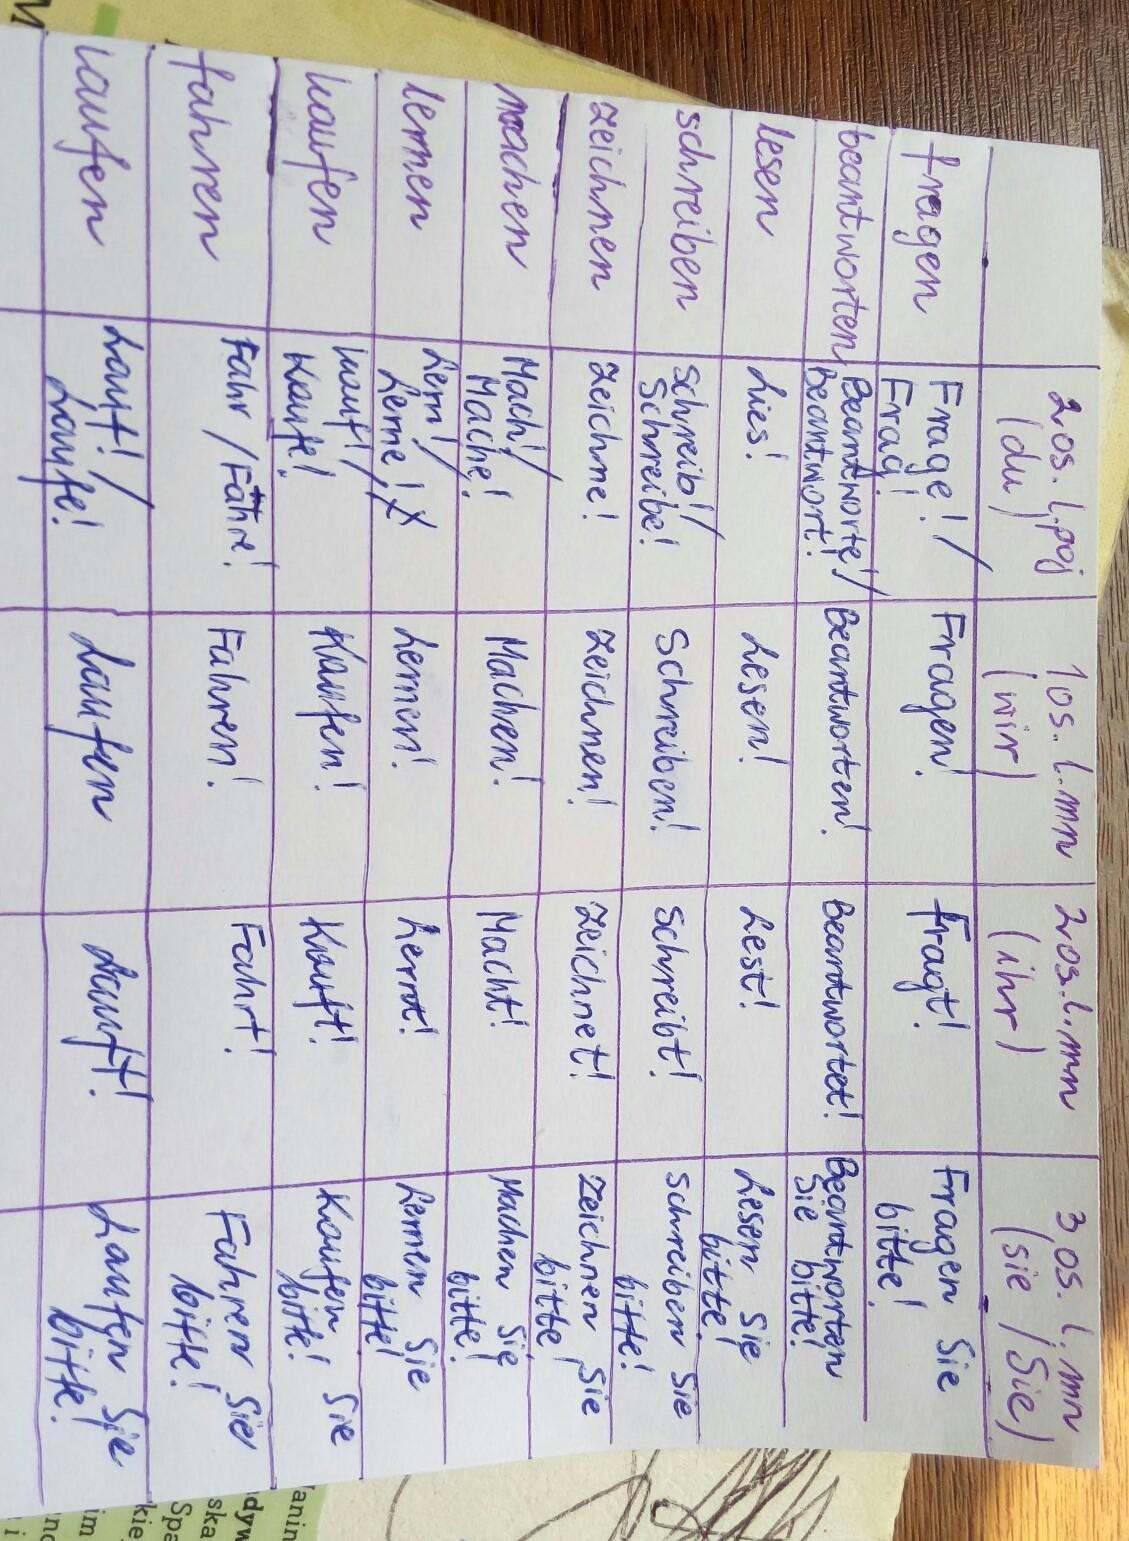 2os. l.poj
(du)
1os. l.mn
(wir)
2os.l.mn
(ihr)
3os. l.mn
(sie / Sie)
fragen
Frage! /
Frag!
Fragen!
Fragt!
Fragen Sie
bitte!
beantworten
Beantworte! /
Beantwort!
Beantworten!
Beantwortet!
Beantworten
Sie bitte!
lesen
Lies!
Lesen!
Lest!
Lesen Sie
bitte!
schreiben
Schreib! /
Schreibe!
Schreiben!
Schreibt!
Schreiben Sie
bitte!
zeichnen
Zeichne!
Zeichnen!
Zeichnet!
Zeichnen Sie
bitte!
machen
Mach! /
Mache!
Machen!
Macht!
Machen Sie
bitte!
lernen
Lern! /
Lerne!
Lernen!
Lernt!
Lernen Sie
bitte!
kaufen
Kauf! /
Kaufe!
Kaufen!
Kauft!
Kaufen Sie
bitte!
fahren
Fahr / Fahre!
Fahren!
Fahrt!
Fahren Sie
bitte!
laufen
Lauf! /
Laufe!
Laufen
Lauft!
Laufen Sie
bitte!